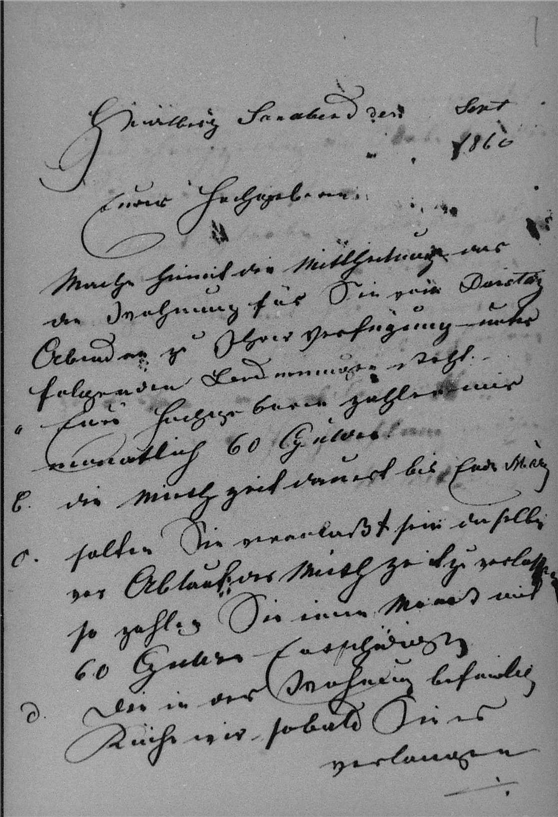 Heidelberg Sonnabend den Sept
1860
Euer Hochgeboren
Mache hiemit die Mittheilung das
die Wohnung für Sie von
Abend an zu Ihrer verfügung unter
folgenden Bedinnungen steht.
" Euer Hochgeboren zahlen mir
monatlich 60 Gulden
b. die Miethzeit dauert bis Ende März
c. solten Sie veranlaßt sein dieselbe
vor Ablauf der Miethzeit zu verlassen
so zahlen Sie einen Monat mit
60 Gulden Entschädigung
d. Den in der Wohnung befindlig
Küche wir sobald Sie es
verlangen